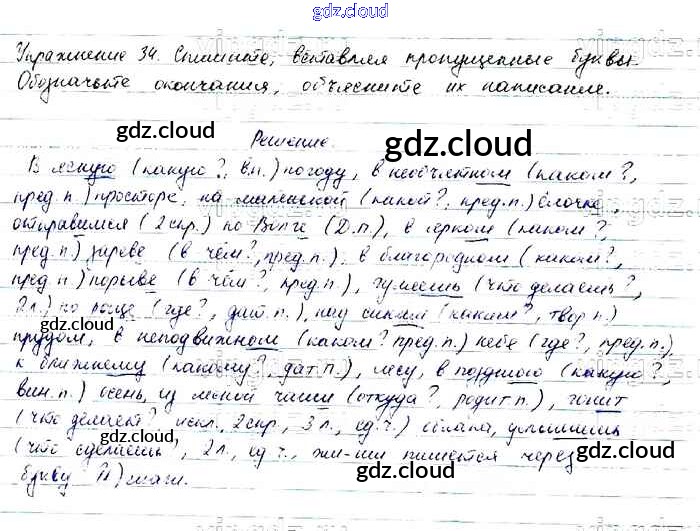 gdz.cloud
Упражнение 34. Спишите, вставляя пропущенные буквы.
Обозначьте окончания, объясните их написание.
gdz.cloud
Решение.
gdz.cloud
В ясную (какую?, в.п.) погоду, в необъятном (каком?,
пред.п.) просторе, на маленькой (какой?, пред.п.) ёлочке,
отправимся (2 спр.) по Волге (Д.п.), в ярком (каком?,
пред.п.) зареве (в чём?, пред.п.), в благородном (каком?,
пред.п.) порыве (в чём?, пред.п.), гуляешь (что делаешь?,
2 л.) по роще (где?, дат.п.), над синим (каким? твор.п.)
gdz.cloud
прудом, в неподвижном (каком? пред.п.) небе (где?, пред.п.)
к ближнему (какому?, дат.п.), лесу, в позднюю (какую?,
вин.п.) осень, из лесной чащи (откуда?, родит.п.), гонит
(что делает? искл., 2 спр., 3 л., ед.ч.) облака, услышишь
(что сделаешь?, 2 л., ед.ч., жи-ши пишется через
букву И) шаги.
gdz.cloud
gdz.cloud
gdz.cloud